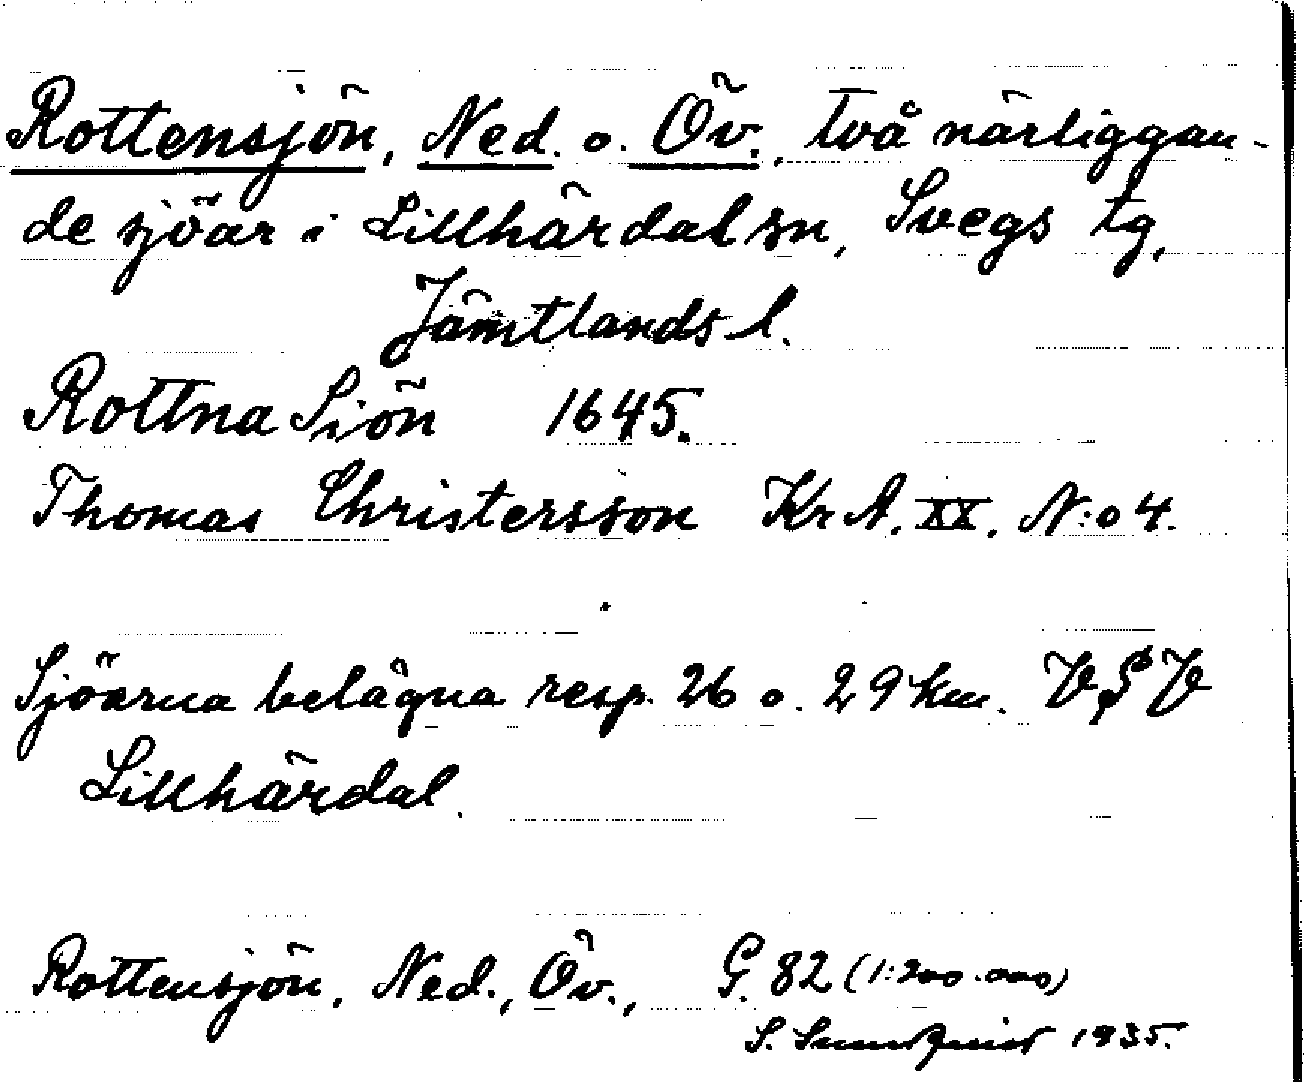 Rottensjön, Ned. o. Öv., två närliggan-
de sjöar i Lillhärdal sn, Svegs tg,
Jämtlands l.
Rottna Siön 1645.
Thomas Christersson Kr A. XX. N:o 4.
Sjöarna belägna resp. 26 o. 29 km. VSV
Lillhärdal.
Rottensjön, Ned., Öv., G. 82 (1:200.000)
S. Sundquist 1935.